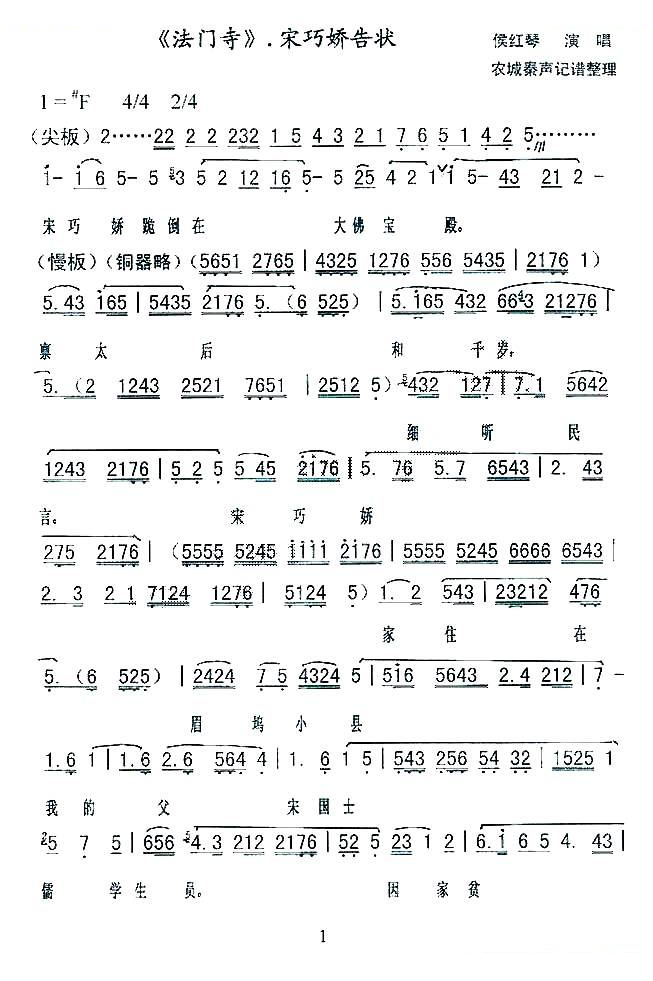 《法门寺》.宋巧娇告状 侯红琴 演 唱
农城秦声记谱整理
1=#F 4/4 2/4
(尖板) 2……22 2 2 232 1 5 4 3 2 1 7 6 5 1 4 2 5………
1- 1 6 5- 5 3 5 2 12 16 5- 5 25 4 2 1 1 5- 43 21 2 -
宋 巧 娇 跪 倒 在 大 佛 宝 殿。
(慢板)(铜器略)(5651 2765 | 4325 1276 556 5435 | 2176 1)
5.43 165 | 5435 2176 5.(6 525) | 5.165 432 6643 21276 |
禀 太 后 和 千 岁,
5.(2 1243 2521 7651 | 2512 5) 5432 127 | 7.1 5642
细 听 民
1243 2176 | 5 2 5 5 45 2176 | 5. 76 5.7 6543 | 2. 43
言。 宋 巧 娇
275 2176 | (5555 5245 1111 2176 | 5555 5245 6666 6543 |
2. 3 2 1 7124 1276 | 5124 5) 1. 2 543 | 23212 476
家 住 在
5.(6 525) | 2424 7 5 4324 5 | 516 5643 2.4 212 | 7 -
眉 坞 小 县
1.6 1 | 1.6 2.6 564 4 | 1. 6 1 5 | 543 256 54 32 | 1525 1
我 的 父 宋 国 士
25 7 5 | 656 4.3 212 2176 | 52 5 23 1 2 | 6.1 65 4. 43 |
儒 学 生 员。 因 家 贫
1